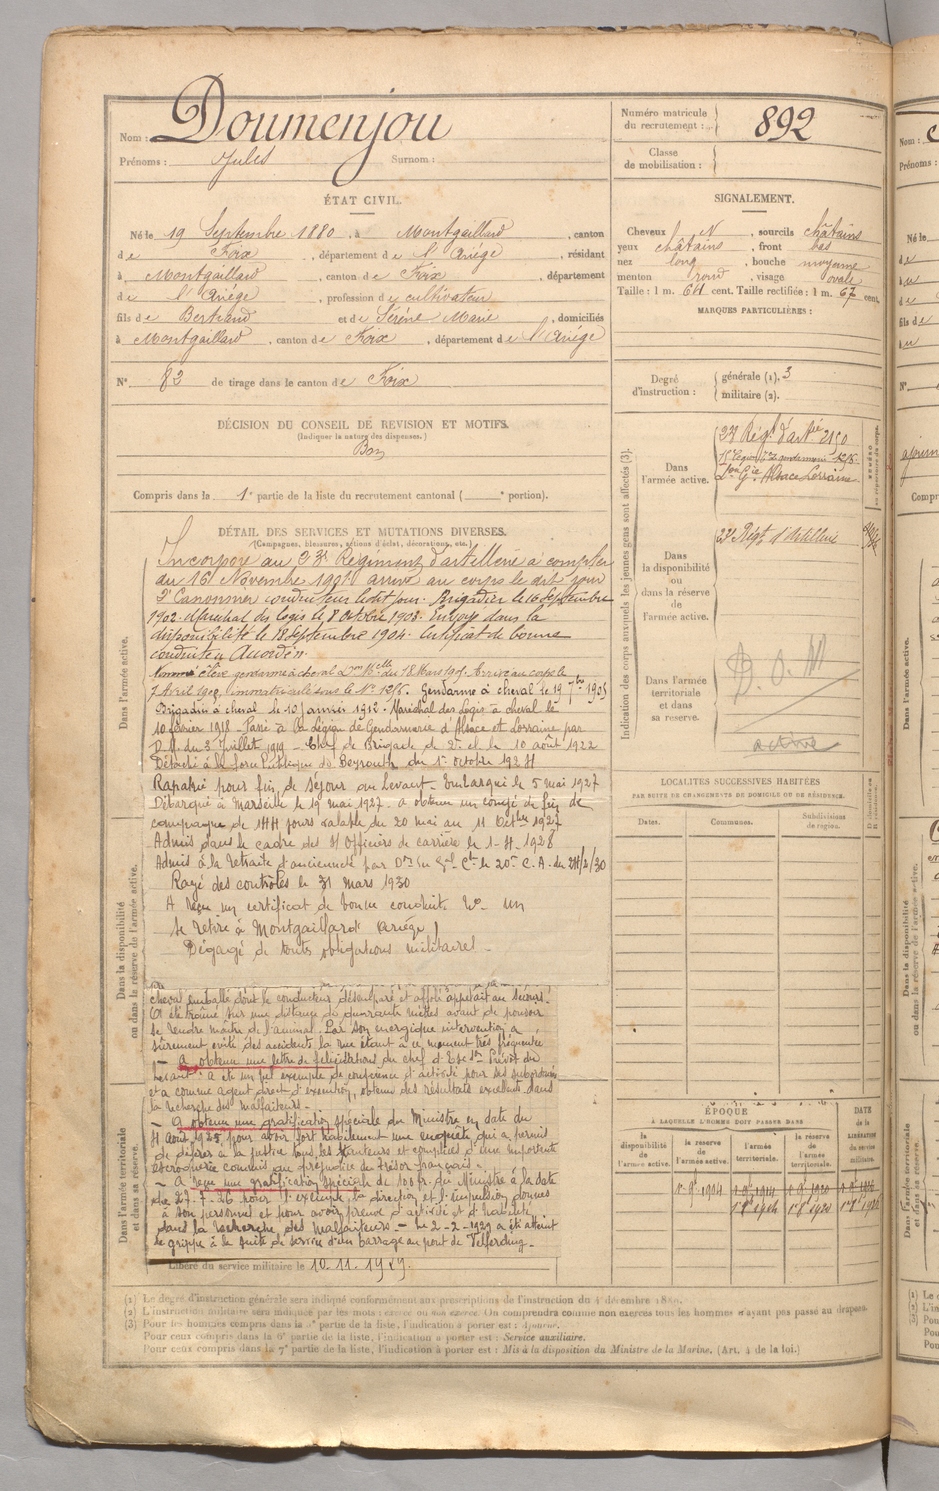 Nom : Doumenjou
Prénoms : Jules Surnom :
Numéro matricule du recrutement : 892
Classe de mobilisation :
ÉTAT CIVIL.
Né le 19 Septembre 1880, à Montgaillard, canton
de Foix, département de l'Ariège, résidant
à Montgaillard, canton de Foix, département
de l'Ariège, profession de cultivateur
fils de Bertrand et de Sérène Marie, domiciliés
à Montgaillard, canton de Foix, département de l'Ariège
N° 82 de tirage dans le canton de Foix
SIGNALEMENT.
Cheveux N, sourcils châtains
yeux châtains, front bas
nez long, bouche moyenne
menton rond, visage ovale
Taille : 1 m. 64 cent. Taille rectifiée : 1 m. 67 cent.
MARQUES PARTICULIÈRES :
Degré d'instruction : générale (1). 3
militaire (2).
DÉCISION DU CONSEIL DE REVISION ET MOTIFS.
(Indiquer la nature des dispenses.)
Bon
Compris dans la 1e partie de la liste du recrutement cantonal ( portion).
Indication des corps auxquels les jeunes gens sont affectés (3).
Dans l'armée active.
23e Régt d'artie 2150
Alsace Lorraine
Dans la disponibilité ou dans la réserve de l'armée active.
23e Régt d'Artillerie
Dans l'armée territoriale et dans sa réserve.
active
DÉTAIL DES SERVICES ET MUTATIONS DIVERSES.
(Campagnes, blessures, actions d'éclat, décorations, etc.)
Dans l'armée active.
Incorporé au 23e Régiment d'artillerie à compter
du 16 Novembre 1901 arrivé au corps le dit jour
2e Canonnier conducteur le dit jour. Brigadier le 16 Septembre
1902. Maréchal des logis le 8 octobre 1903. Envoyé dans la
disponibilité le 18 Septembre 1904. Certificat de bonne
conduite Accordé.
Nommé élève gendarme à cheval 18 Mars 1905. Arrivé au corps le
7 Avril immatriculé sous le N° 1215. Gendarme à cheval le 19 7bre 1905
Brigadier à cheval le 10 janvier 1912. Maréchal des Logis à cheval le
10 février 1918 - Passé à la Légion de Gendarmerie d'Alsace et Lorraine par
D.M. du 3 Juillet 1919 - Chef de Brigade de 2e cl. le 10 août 1922
Détaché à la force Publique de Beyrouth du 1er octobre 1924
Rapatrié pour fin de séjour au Levant. Embarqué le 5 mai 1927
Débarqué à Marseille le 19 mai 1927. a obtenu un congé de fin de
campagne de 144 jours valable du 20 mai au 11 Octbre 1927
Admis dans le cadre des s/Officiers de carrière le 1-4-1928
Admis à la retraite d'ancienneté par Don du Gal Ct le 20e C.A. du 24/2/30
Rayé des contrôles le 31 mars 1930
A reçu un certificat de bonne conduite
Se retire à Montgaillard (Ariège)
Dégagé de toutes obligations militaires -
Dans la disponibilité ou dans la réserve de l'armée active.
cheval emballé dont le conducteur désemparé et affolé appelait au secours.
A été traîné sur une distance de quarante mètres avant de pouvoir
se rendre maître de l'animal. Par son énergique intervention a
sûrement évité des accidents la rue étant à ce moment très fréquentée
- A obtenu une lettre de félicitations du chef d'Esc. Prévôt du
Levant "a été un exemple de conscience et d'activité pour ses subordonnés
et a comme agent direct d'exécution, obtenu des résultats excellents dans
la recherche des malfaiteurs -
- A obtenu une gratification spéciale du Ministre en date du
4 août 1925 pour avoir fort habilement une enquête qui a permis
de déférer à la justice tous les auteurs et complices d'une importante
escroquerie commise au préjudice du trésor français -
- A reçu une gratification spéciale de 100 fr. du Ministre à la date
du 27-7-26 pour l'exemple, la direction et l'impulsion donnés
à son personnel et pour avoir preuve d'activité et d'habileté
dans la recherche des malfaiteurs - le 2-2-1929 a été atteint
de grippe à la suite de service d'un barrage au pont de Welferding -
Dans l'armée territoriale et dans sa réserve.
Libéré du service militaire le 10.11.1929.
LOCALITÉS SUCCESSIVES HABITÉES
PAR SUITE DE CHANGEMENTS DE DOMICILE OU DE RÉSIDENCE.
Dates. Communes. Subdivisions de région.
ÉPOQUE
À LAQUELLE L'HOMME DOIT PASSER DANS
la disponibilité de l'armée active. la réserve de l'armée active. l'armée territoriale. la réserve de l'armée territoriale.
DATE de la LIBÉRATION du service militaire.
1er 9bre 1904
(1) Le degré d'instruction générale sera indiqué conformément aux prescriptions de l'instruction du 4 décembre 1889.
(2) L'instruction militaire sera indiquée par les mots : exercé ou non exercé. On comprendra comme non exercés tous les hommes n'ayant pas passé au drapeau.
(3) Pour les hommes compris dans la 5e partie de la liste, l'indication à porter est : Ajourné.
Pour ceux compris dans la 6e partie de la liste, l'indication à porter est : Service auxiliaire.
Pour ceux compris dans la 7e partie de la liste, l'indication à porter est : Mis à la disposition du Ministre de la Marine. (Art. 4 de la loi.)